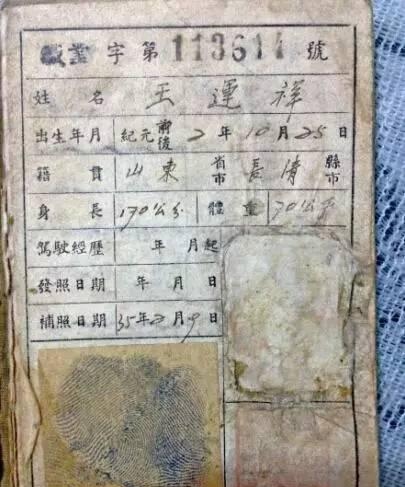 職業字第113611號
姓名 王運祥
出生年月 紀元前後 2年10月25日
籍貫 山東省市 長清縣市
身長 170公分 體重 70公斤
駕駛經歷 年 月起
發照日期 年 月 日
補照日期 35年2月9日